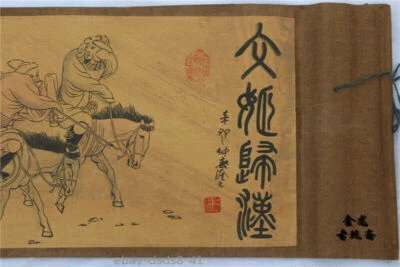 文姬歸漢
辛卯仲
金龙
古玩斋
ebay-dsds8-41